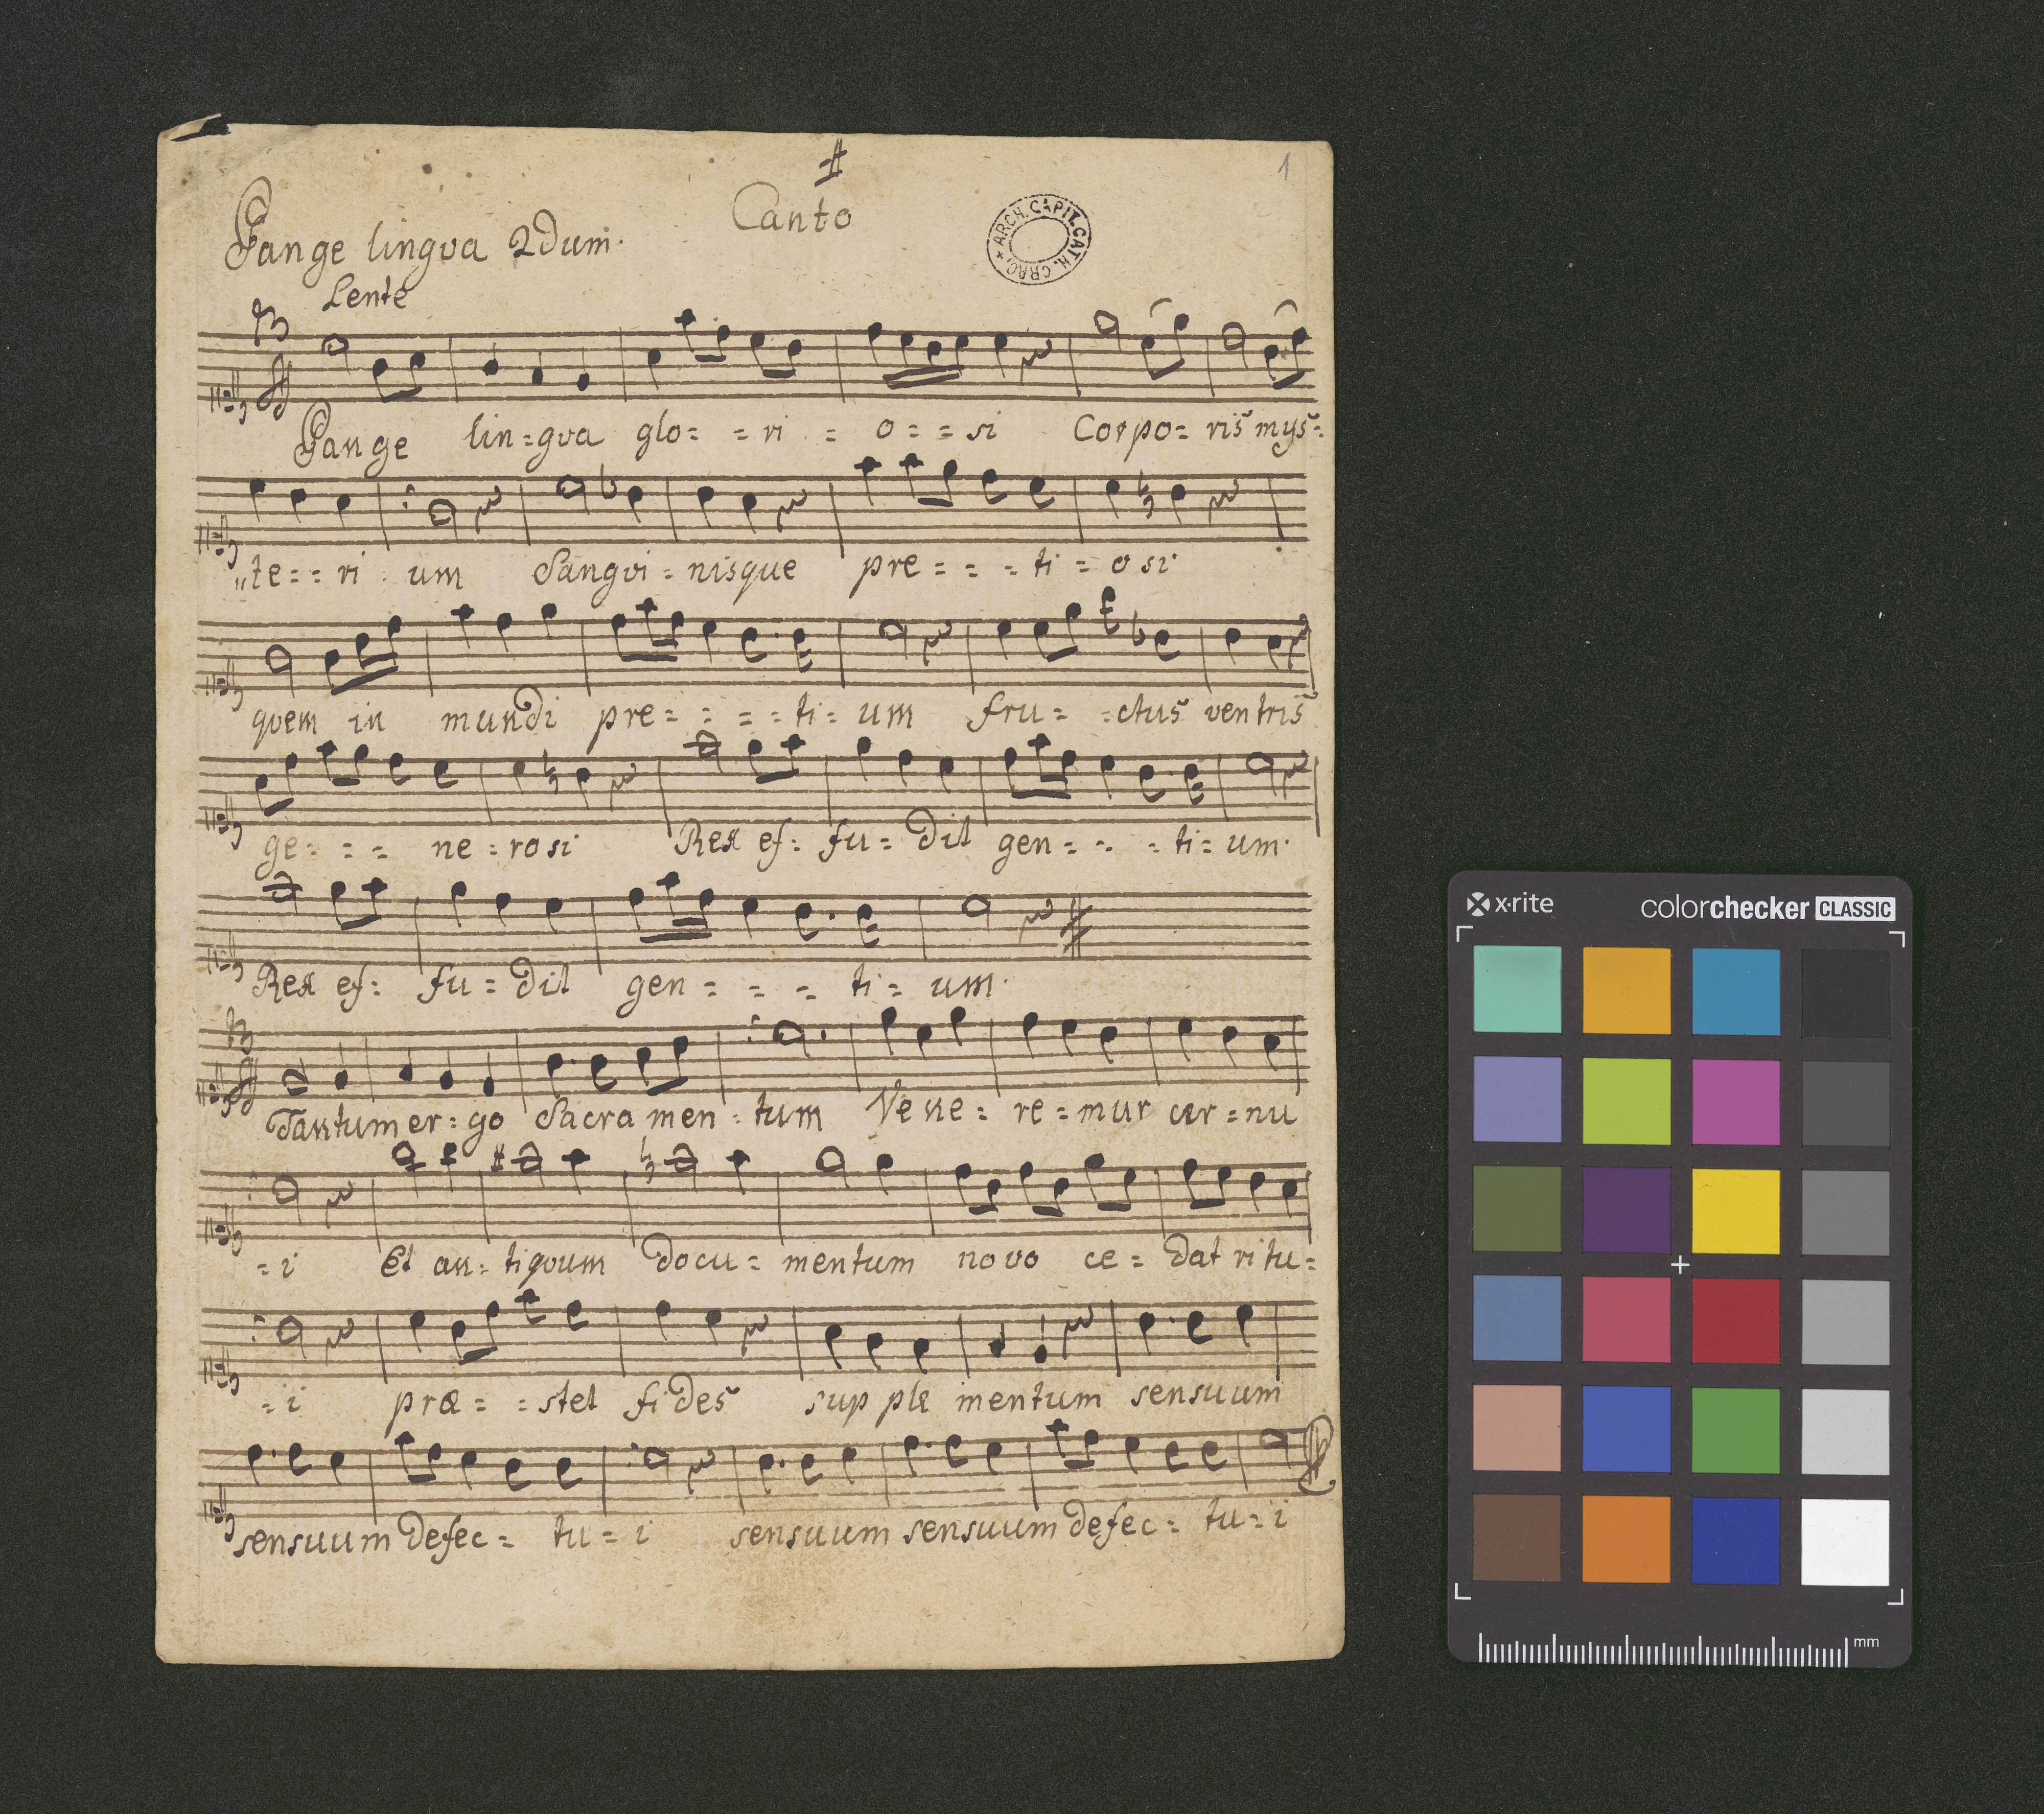 1
Canto
ARCH. CAPIT. CATH. CRAC.
Pange lingva 2dum.
Lente
Pange lin=gva glo= =ri = o= =si Corpo= ris mys=
"te= =ri um Sangvi=nisque pre= = =ti=osi
qvem in mundi pre= = = =ti= um fru= =ctus ventris
ge= = = ne=rosi Rex ef= fu=dit gen= = =ti=um.
Rex ef= fu=dit gen= = = ti= um.
Tantum er=go Sacramen=tum Vene= re=mur cer=nu
=i Et an=tiqvum docu=mentum novo ce=dat ritu=
=i præ= =stet fides supple mentum sensuum
sensuum defec= tu=i sensuum sensuum defec= tu=i
x·rite colorchecker CLASSIC
mm